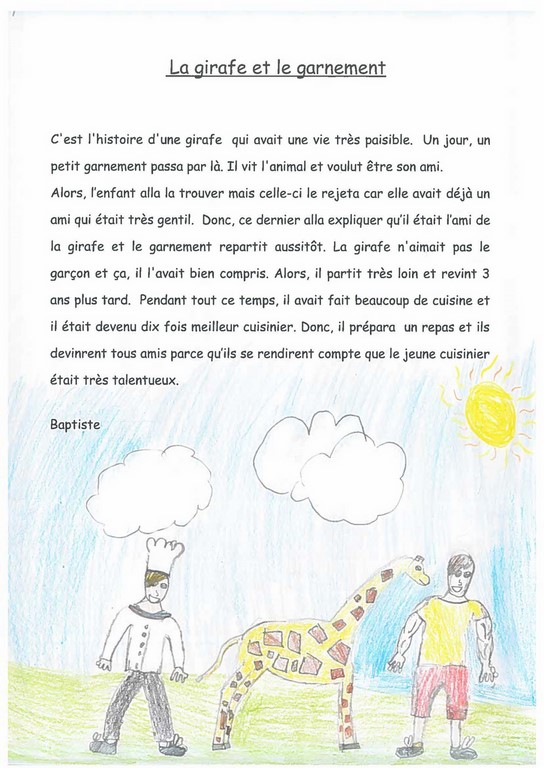 La girafe et le garnement
C'est l'histoire d'une girafe qui avait une vie très paisible. Un jour, un
petit garnement passa par là. Il vit l'animal et voulut être son ami.
Alors, l'enfant alla la trouver mais celle-ci le rejeta car elle avait déjà un
ami qui était très gentil. Donc, ce dernier alla expliquer qu'il était l'ami de
la girafe et le garnement repartit aussitôt. La girafe n'aimait pas le
garçon et ça, il l'avait bien compris. Alors, il partit très loin et revint 3
ans plus tard. Pendant tout ce temps, il avait fait beaucoup de cuisine et
il était devenu dix fois meilleur cuisinier. Donc, il prépara un repas et ils
devinrent tous amis parce qu'ils se rendirent compte que le jeune cuisinier
était très talentueux.
Baptiste